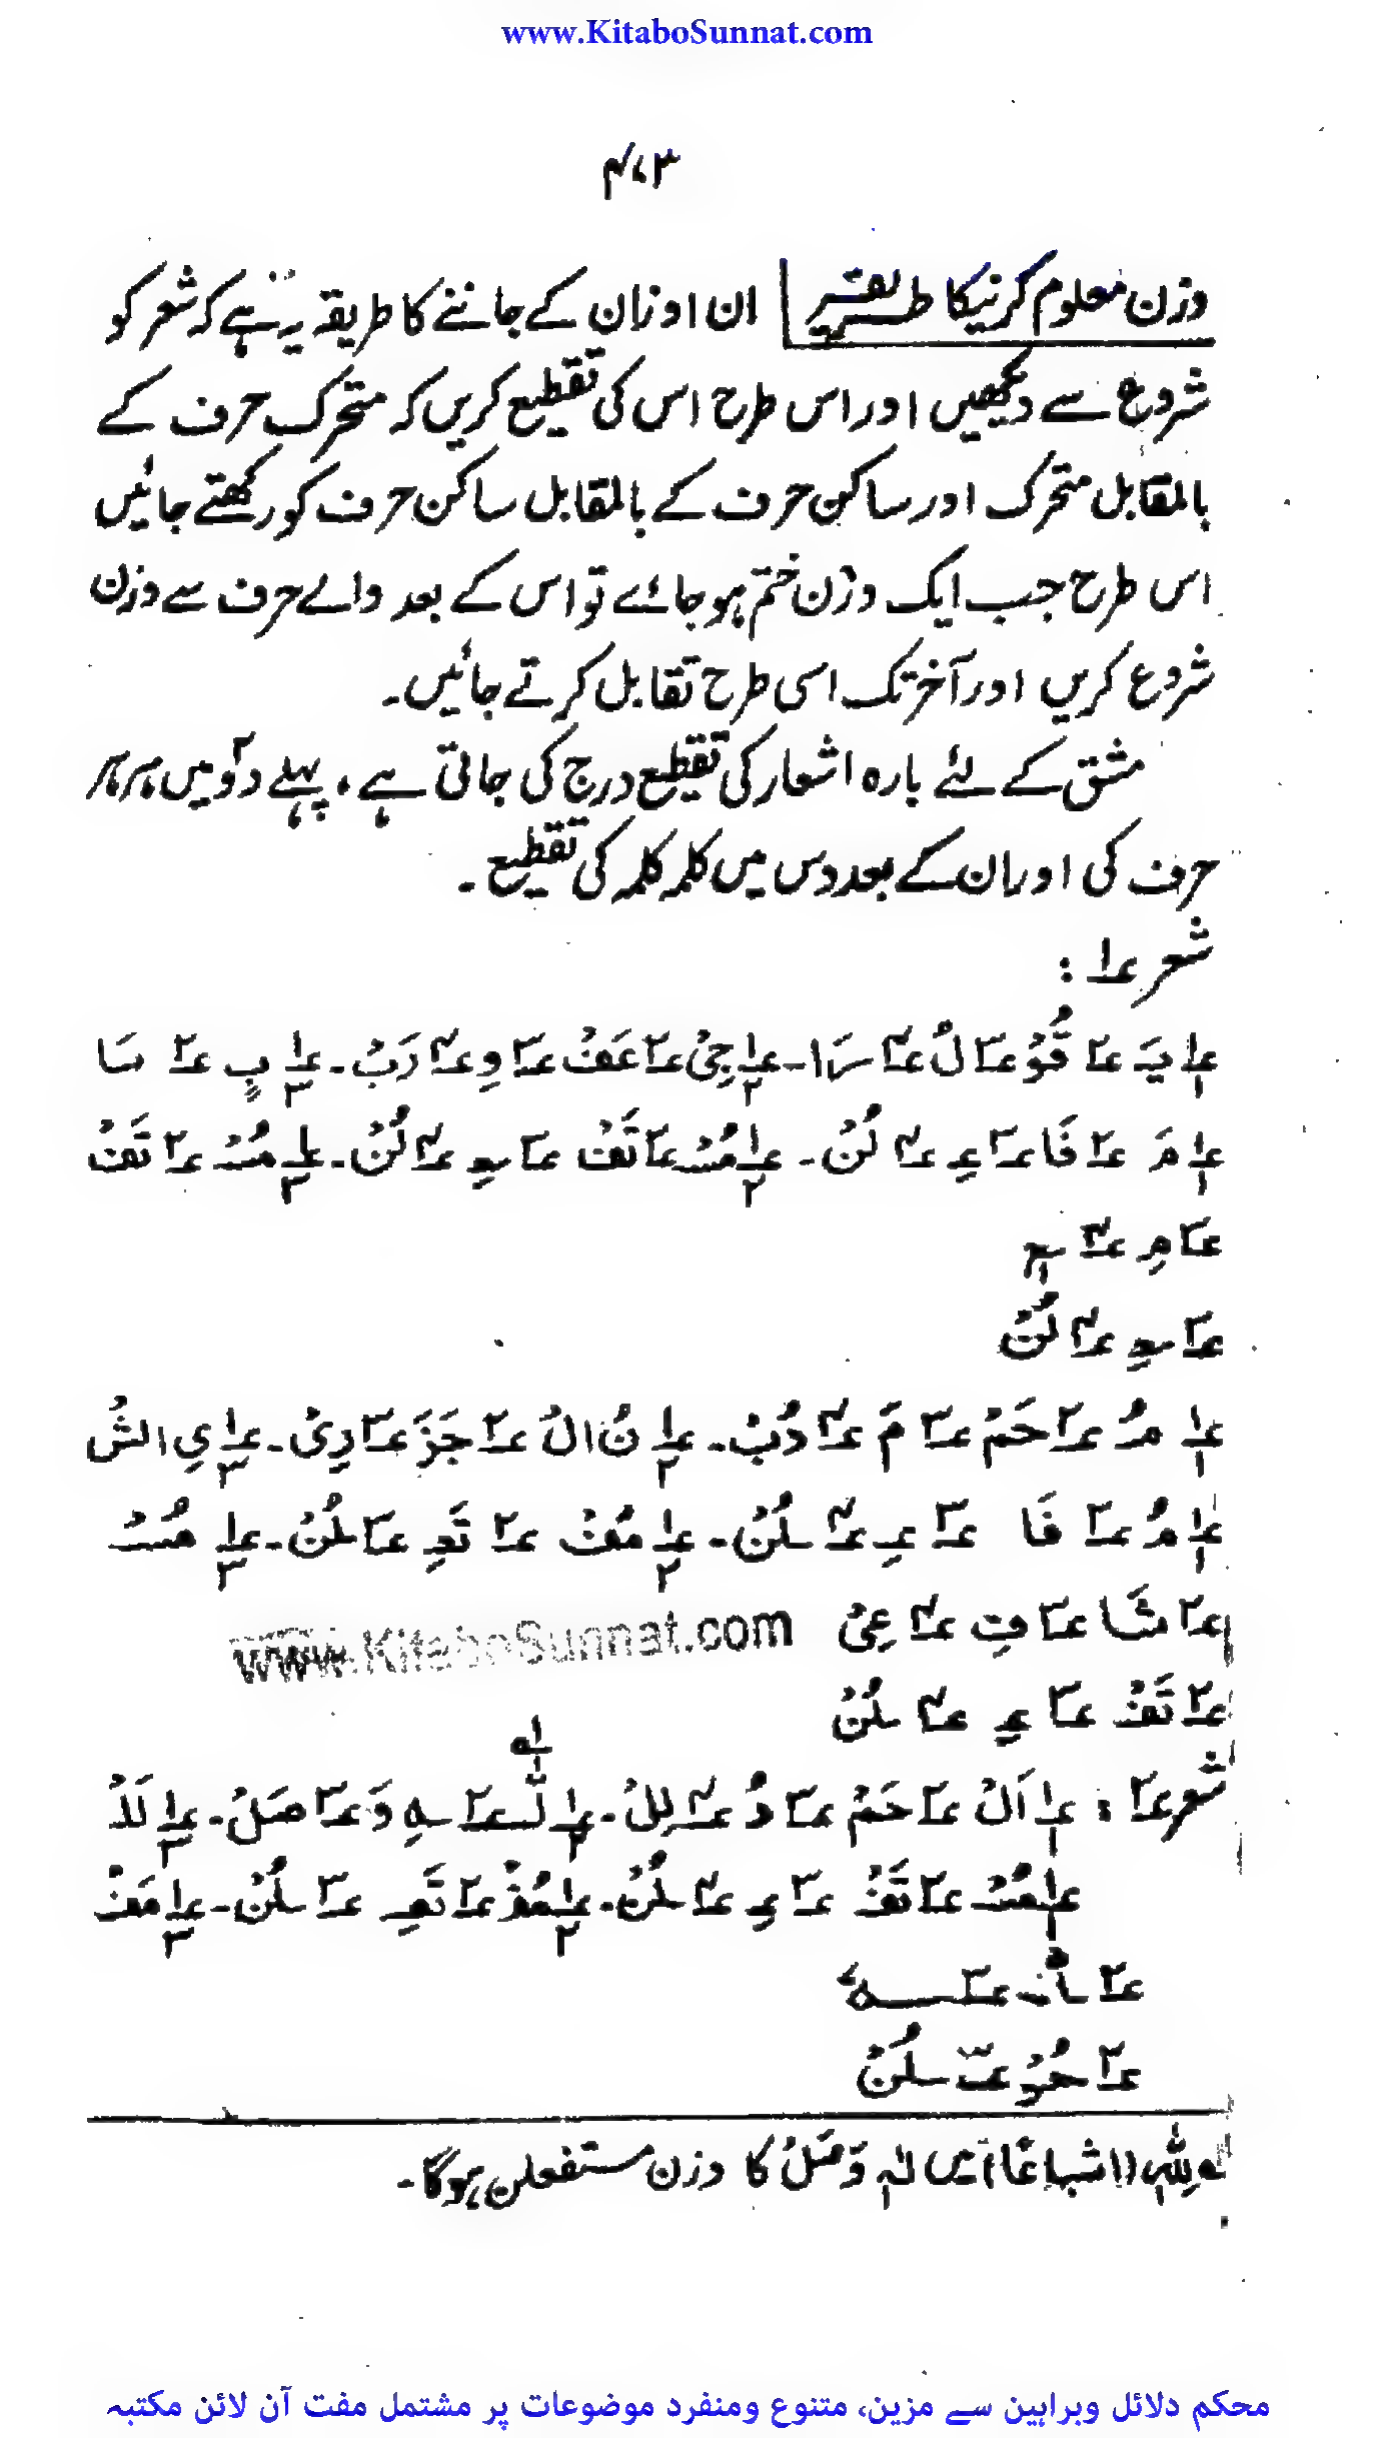 www.KitaboSunnat.com
۴۷۳
وزن معلوم کرنیکا طریقہ ان اوزان کے جاننے کا طریقہ یہ ہے کہ شعر کو
شروع سے دیکھیں اور اس طرح اس کی تقطیع کریں کہ متحرک حرف کے
بالمقابل متحرک اور ساکن حرف کے بالمقابل ساکن حرف کو رکھتے جائیں
اس طرح جب ایک وزن ختم ہوجائے تو اس کے بعد والے حرف سے وزن
شروع کریں اور آخر تک اسی طرح تقابل کرتے جائیں۔
مشق کے لئے بارہ اشعار کی تقطیع درج کی جاتی ہے، پہلے دو میں ہر ہر
حرف کی اور ان کے بعد دس میں کلمہ کلمہ کی تقطیع۔
شعر ۱ :
۱ یَ ۲ قُوْ ۳ لُ ۴ سَرَا۔ ۱ جِیْ ۲ عَفْ ۳ وِ ۴ رَبْ۔ ۱ بِ ۲ سَا
۱ مَ ۲ فَا ۳ عِ ۴ لُنْ۔ ۱ مُسْ ۲ تَفْ ۳ عِ ۴ لُنْ۔ ۱ مُسْ ۲ تَفْ
۳ مِ ۴
۳ عِ ۴ لُنْ
۱ مُ ۲ حَمْ ۳ مَ ۴ دُبْ۔ ۱ نُ الْ ۲ جَزَ ۳ رِیْ۔ ۱ یِ الشْ
۱ مُ ۲ فَا ۳ عِ ۴ لُنْ۔ ۱ مُفْ ۲ تَعِ ۳ لُنْ۔ ۱ مُسْ
۲ شَا ۳ فِ ۴ عِیْ
www.KitaboSunnat.com
۲ تَفْ ۳ عِ ۴ لُنْ
شعر ۲ : ۱ اَلْ ۲ حَمْ ۳ دُ ۴ لِلْ۔ ۱ لٰ ۲ ہِ وَ ۳ صَلْ۔ ۱ لَلْ
۱ مُسْ ۲ تَفْ ۳ عِ ۴ لُنْ۔ ۱ مُفْ ۲ تَعِ ۳ لُنْ۔ ۱ مَفْ
۲ ۳ ہُ
۲ عُوْ ۳ لُنْ
لِلّٰہِ (اشباعًا) میں لٰہِ وَصَلْ کا وزن مستفعلن ہوگا۔
محکم دلائل وبراہین سے مزین، متنوع ومنفرد موضوعات پر مشتمل مفت آن لائن مکتبہ